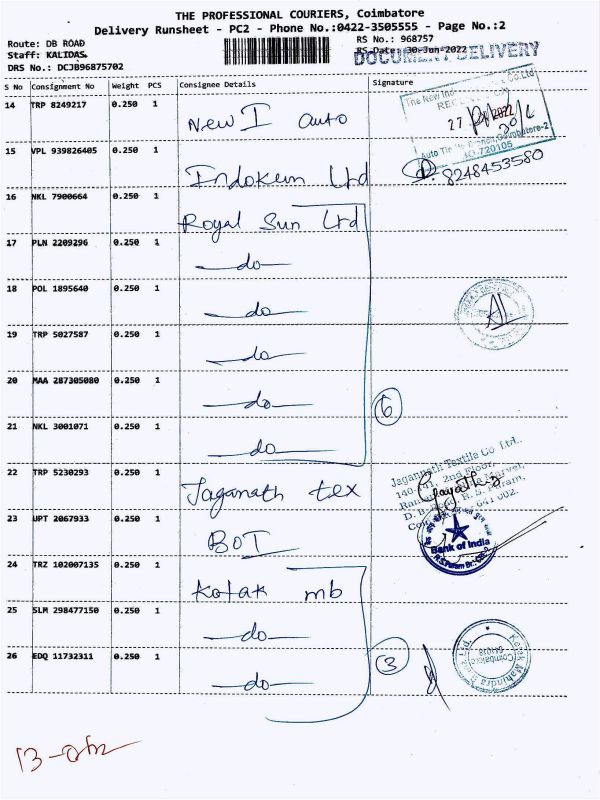 THE PROFESSIONAL COURIERS, Coimbatore
Delivery Runsheet - PC2 - Phone No.:0422-3505555 - Page No.:2
Route: DB ROAD
RS No.: 968757
Staff: KALIDAS
RS Date: 30-Jun-2022
DOCUMENT DELIVERY
DRS No.: DCJB96875702
S No Consignment No Weight PCS Consignee Details Signature
14 TRP 8249217 0.250 1 New I auto
The New Ind Co.Ltd
27 2022
Auto Tie Coimbatore-2
720105
8248453580
15 VPL 939826405 0.250 1 Indokem Ltd
16 NKL 7900664 0.250 1 Royal Sun Ltd
17 PLN 2209296 0.250 1 do
18 POL 1895640 0.250 1 do
19 TRP 5027587 0.250 1 do
20 MAA 287305080 0.250 1 do
6
21 NKL 3001071 0.250 1 do
22 TRP 5230293 0.250 1 Jaganath tex
Jagannath Textile Co Ltd.,
2nd Floor,
Gayathri
641 002.
23 UPT 2067933 0.250 1 BOI
Bank of India
24 TRZ 102007135 0.250 1 Kotak mb
25 SLM 298477150 0.250 1 do
26 EDQ 11732311 0.250 1 do
3
Kotak Mahindra Ltd.
Coimbatore